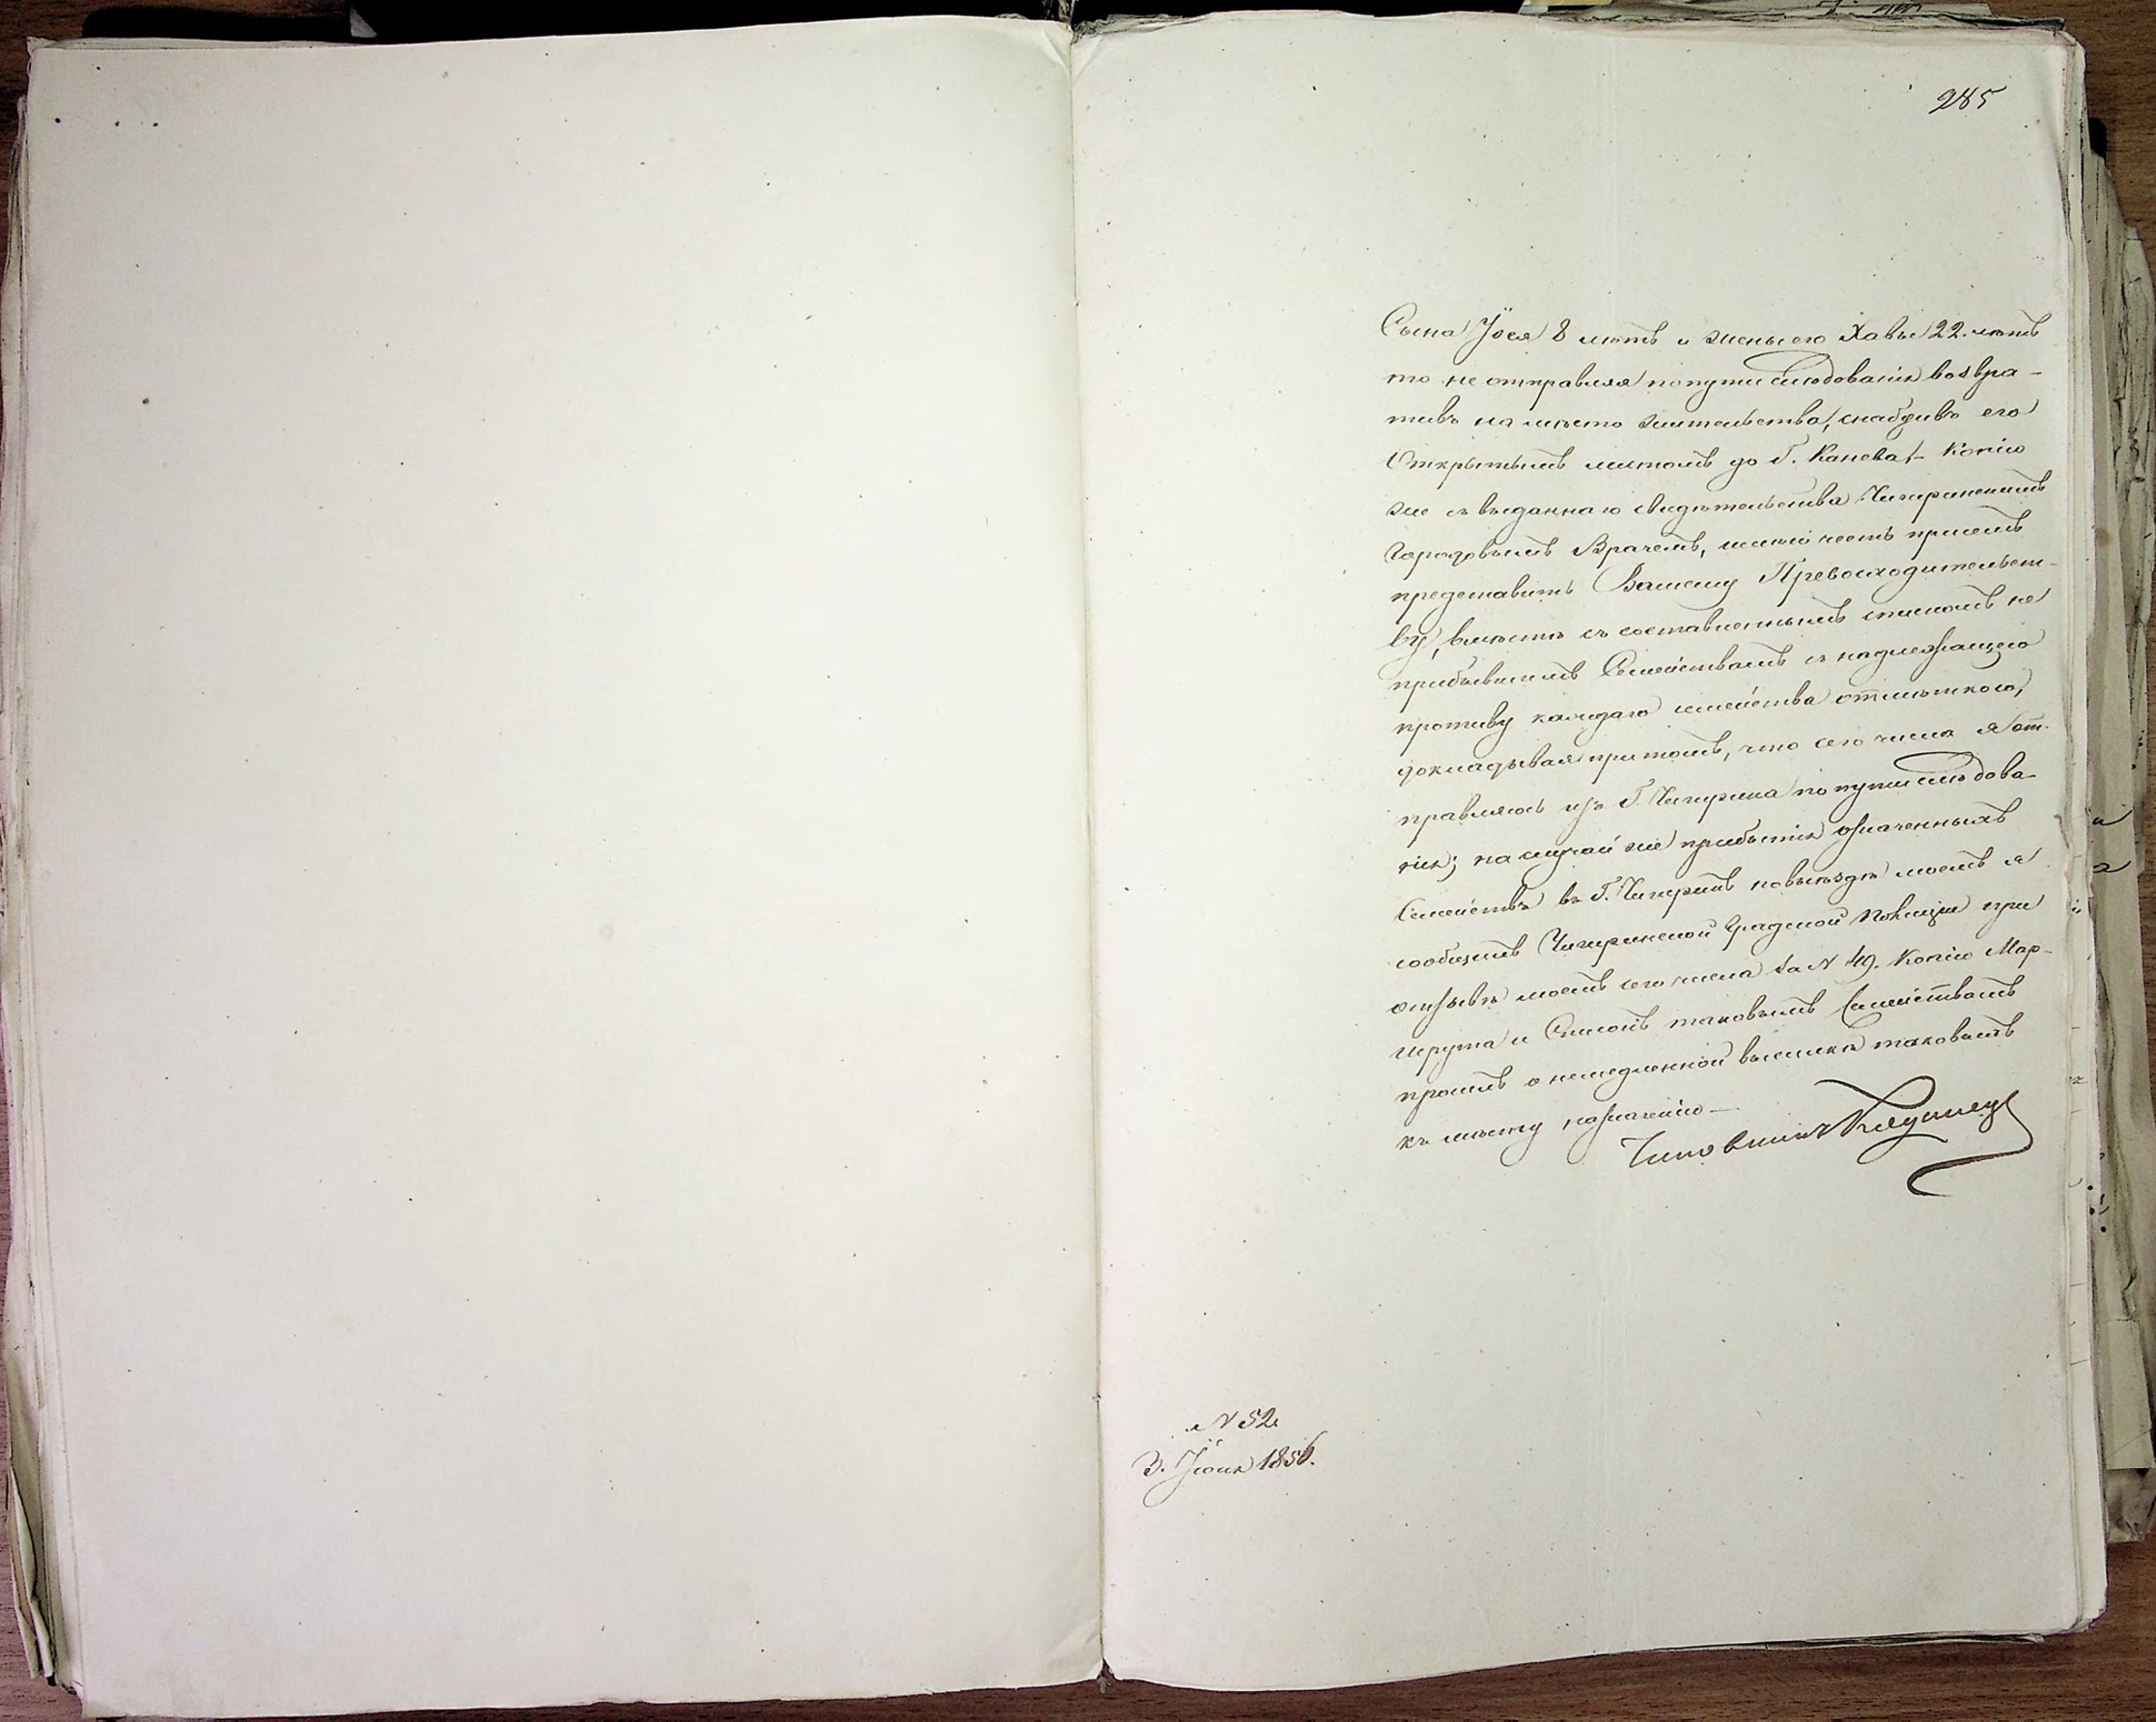 285
Сына Іося 8 летъ и жены его Хавы 22. летъ
то не отправляя попути следованія возвра-
тивъ на место жительства, снабдивъ его
Открытымъ листомъ до Г. Канева. Копію
же съ выданнаго свидетельства Чигиринскимъ
Городовымъ Врачемъ, имею честь присемъ
представить Вашему Превосходительст-
ву, вместе съ составленнымъ спискомъ не
прибывшимъ Семействамъ съ надлежащею
противу каждаго семейства отметкою,
докладывая притомъ, что сего числа я от-
правляюсь изъ Г. Чигирина по пути следова-
нія; на случай же прибытія означенныхъ
Семействъ въ Г. Чигиринъ по выезде моемъ я
сообщилъ Чигиринской Градской Полиціи при
отзыве моемъ сего числа за N 49. Копію Мар-
шрута и Списокъ таковымъ Семействамъ
просилъ о немедленной высылке таковыхъ
къ месту назначенію —
Чиновникъ
N 52.
3. Іюня 1856.